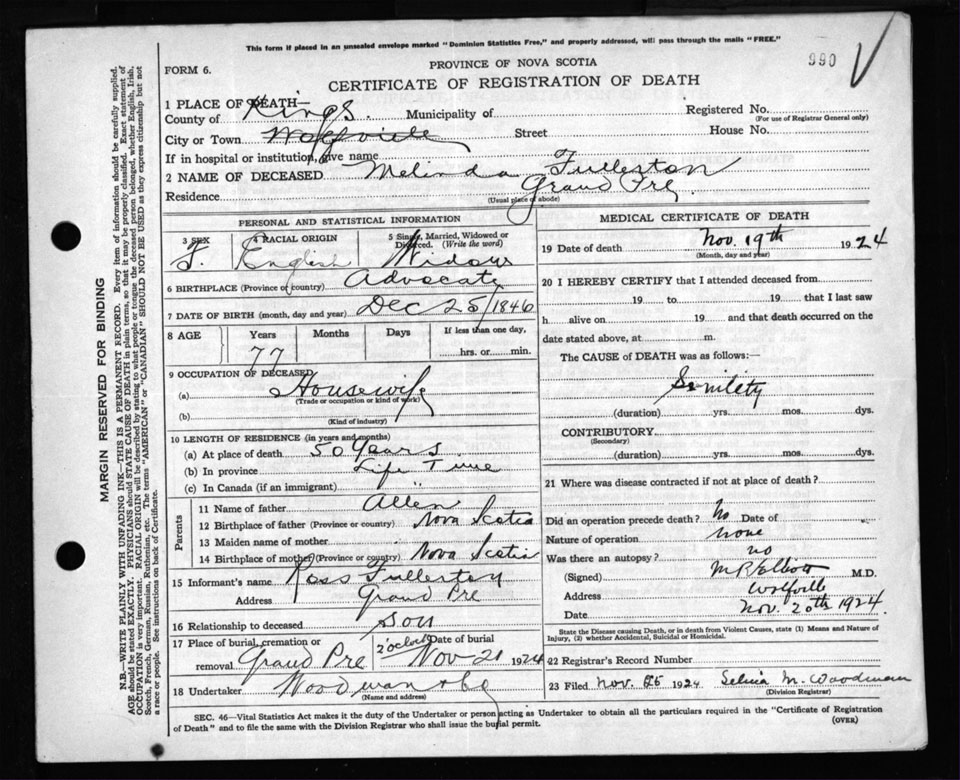 This form if placed in an unsealed envelope marked "Dominion Statistics Free," and properly addressed, will pass through the mails "FREE."
990
FORM 6.
PROVINCE OF NOVA SCOTIA
CERTIFICATE OF REGISTRATION OF DEATH
1 PLACE OF DEATH—
County of Kings. Municipality of Registered No.
(For use of Registrar General only)
City or Town Wolfville Street House No.
If in hospital or institution, give name
2 NAME OF DECEASED Melinda Fullerton
Residence Grand Pre
(Usual place of abode)
PERSONAL AND STATISTICAL INFORMATION
3 SEX 4 RACIAL ORIGIN 5 Single, Married, Widowed or Divorced. (Write the word)
F. English Widow
6 BIRTHPLACE (Province or country) Advocate
7 DATE OF BIRTH (month, day and year) Dec 25/1846
8 AGE Years Months Days If less than one day,
77 hrs. or min.
9 OCCUPATION OF DECEASED
(a) Housewife
(Trade or occupation or kind of work)
(b)
(Kind of industry)
10 LENGTH OF RESIDENCE (in years and months)
(a) At place of death 50 Years.
(b) In province Life Time
(c) In Canada (if an immigrant) "
Parents
11 Name of father Allen
12 Birthplace of father (Province or country) Nova Scotia
13 Maiden name of mother
14 Birthplace of mother (Province or country) Nova Scotia
15 Informant's name Ross Fullerton
Address Grand Pre
16 Relationship to deceased son
17 Place of burial, cremation or removal Grand Pre 2 o'clock Date of burial Nov 21 1924
18 Undertaker Woodman & Co
(Name and address)
MEDICAL CERTIFICATE OF DEATH
19 Date of death Nov. 19th 1924
(Month, day and year)
20 I HEREBY CERTIFY that I attended deceased from
19 to 19 that I last saw
h alive on 19 and that death occurred on the
date stated above, at m.
The CAUSE of DEATH was as follows:—
Senility
(duration) yrs. mos. dys.
CONTRIBUTORY
(Secondary)
(duration) yrs. mos. dys.
21 Where was disease contracted if not at place of death?
Did an operation precede death? No Date of
Nature of operation none
Was there an autopsy? no
(Signed) M R Elliott M.D.
Address Wolfville
Date Nov. 20th 1924.
State the Disease causing Death, or in death from Violent Causes, state (1) Means and Nature of
Injury, (2) whether Accidental, Suicidal or Homicidal.
22 Registrar's Record Number
23 Filed Nov. 1924 Selina M. Woodman
(Division Registrar)
SEC. 46—Vital Statistics Act makes it the duty of the Undertaker or person acting as Undertaker to obtain all the particulars required in the "Certificate of Registration
of Death" and to file the same with the Division Registrar who shall issue the burial permit. (OVER)
MARGIN RESERVED FOR BINDING
N.B.—WRITE PLAINLY WITH UNFADING INK—THIS IS A PERMANENT RECORD. Every item of information should be carefully supplied.
AGE should be stated EXACTLY. PHYSICIANS should STATE CAUSE OF DEATH in plain terms, so that it may be properly classified. Exact statement of
OCCUPATION is very important. RACIAL ORIGIN will be described by stating to what people or tongue the deceased person belonged, whether English, Irish,
Scotch, French, German, Russian, Ruthenian, etc. The terms "AMERICAN" or "CANADIAN" SHOULD NOT BE USED as they express citizenship but not
a race or people. See instructions on back of Certificate.